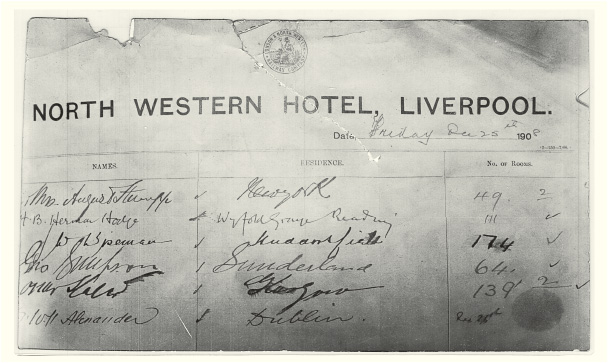 NORTH WESTERN HOTEL, LIVERPOOL.
Date, Friday Dec 25th 1908
NAMES. RESIDENCE. No. OF ROOMS.
Mrs August 1 New York 49. 2
B. Herman Hodge Wyfold Grange Reading 111
Spenman 1 Huddersfield 174
Geo Simpson 1 Sunderland 64.
Oscar Slater 1 Glasgow 139 2
W H Alexander Dublin.